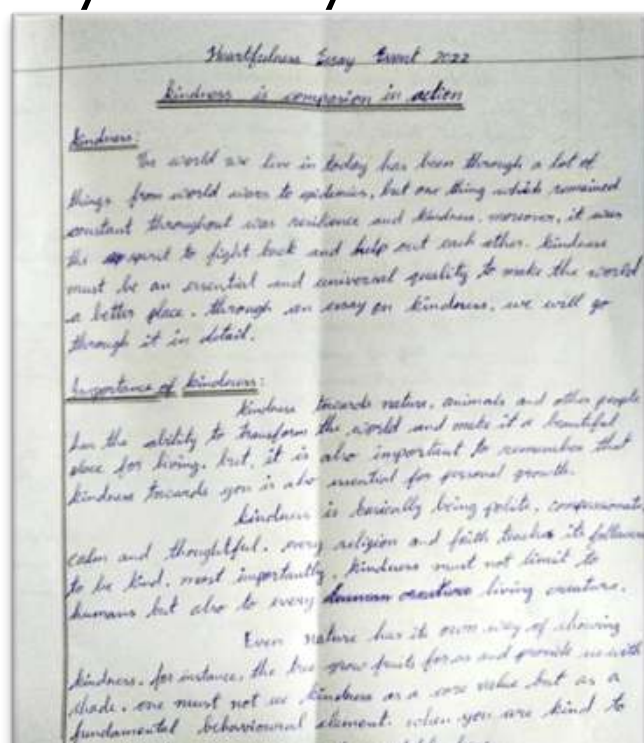 Heartfulness Essay Event 2022
kindness is compasion in action
kindness:
The world we live in today has been through a lot of
things from world wars to epidemics, but one thing which remained
constant throughout was resilience and kindness. moreover, it was
the spirit to fight back and help out each other. kindness
must be an essential and universal quality to make the world
a better place. through an essay on kindness, we will go
through it in detail.
Importance of kindness:
kindness towards nature, animals and other people
has the ability to transform the world and make it a beautiful
place for living. but, it is also important to remember that
kindness towards you is also essential for personal growth.
kindness is basically being polite, compassionate,
calm and thoughtful. every religion and faith teaches its followers
to be kind. most importantly, kindness must not limit to
humans but also to every human creature living creature.
Even nature has its own way of showing
kindness. for instance, the tree grow fruits for us and provide us with
shade. one must not use kindness as a core value but as a
fundamental behavioural element. when you are kind to